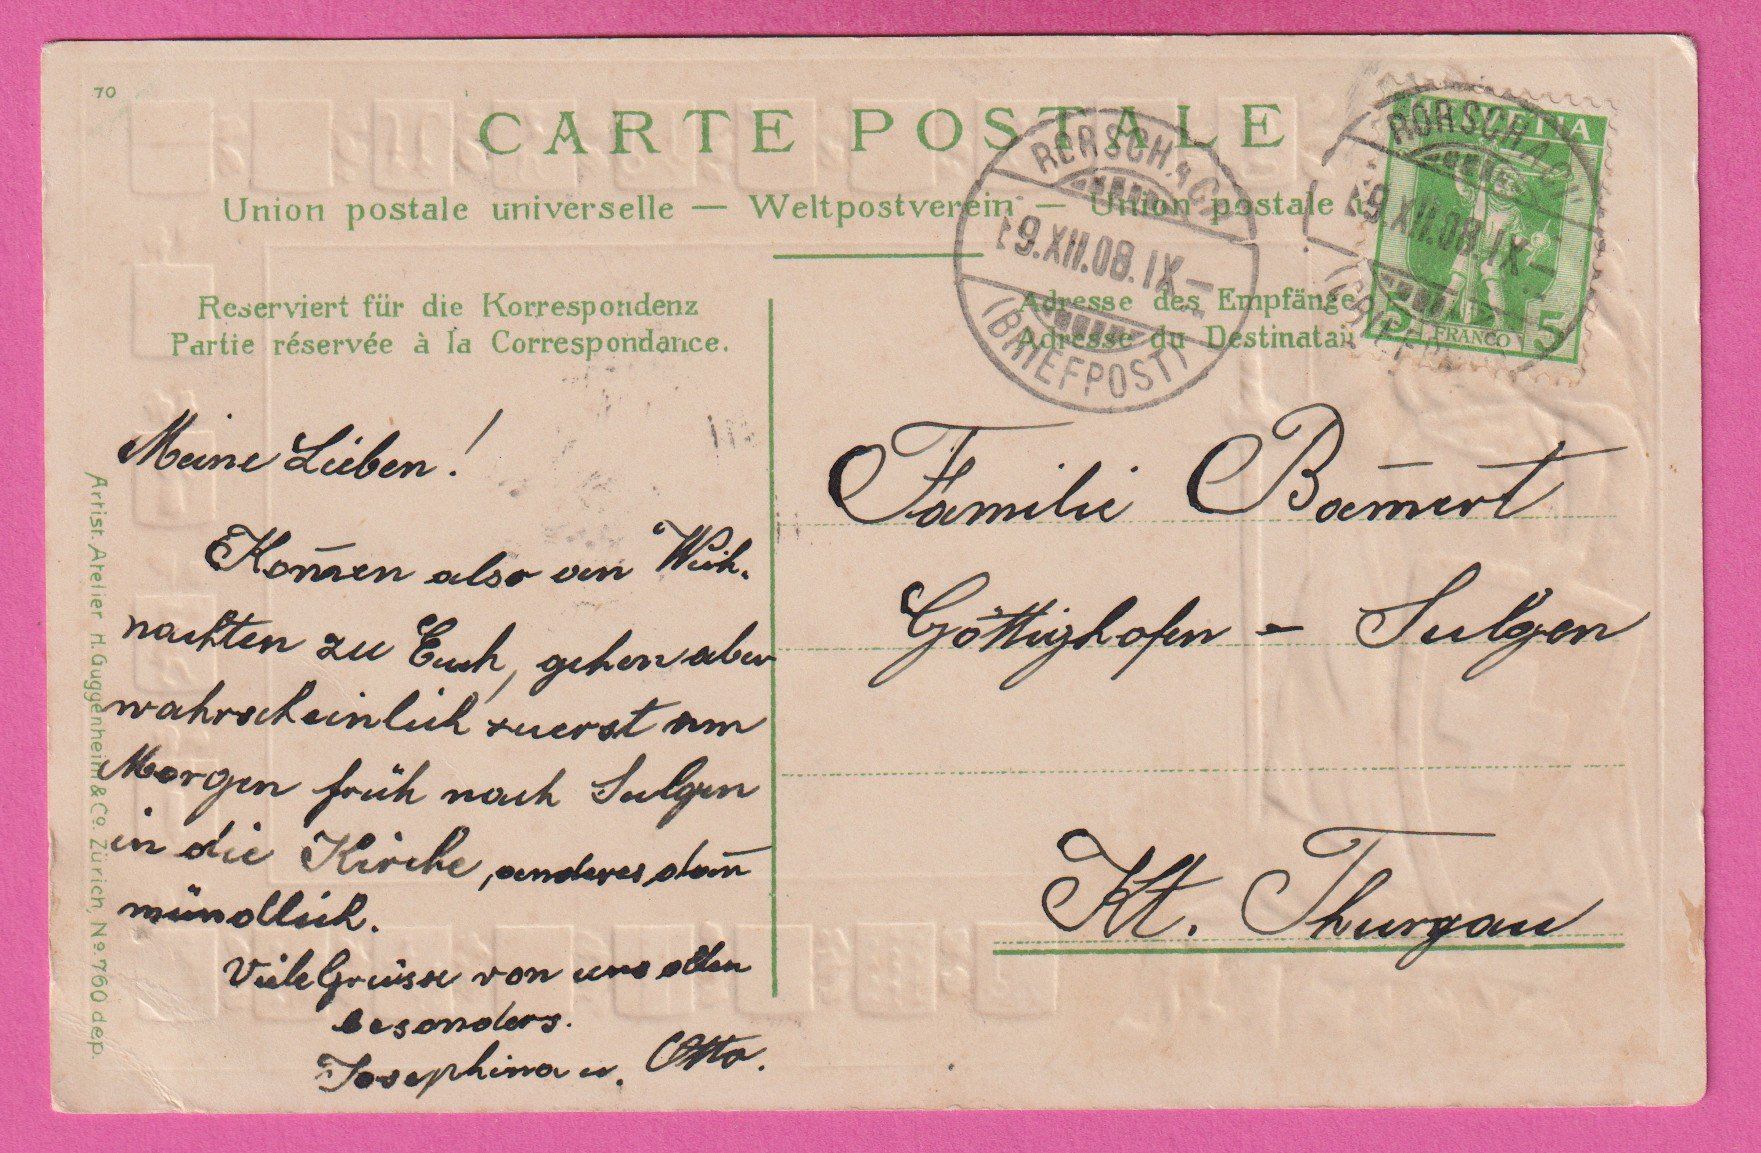 70
CARTE POSTALE
Union postale universelle — Weltpostverein — Union postale
Reserviert für die Korrespondenz
Partie réservée à la Correspondance.
Adresse des Empfänge
Adresse du Destinatai
HELVETIA
5 FRANCO 5
RORSCHACH
19.XII.08.IX–
(BRIEFPOST)
RORSCHACH
19.XII.08.IX–
(BRIEFPOST)
Meine Lieben!
Kom̄en also an Weih-
nachten zu Euch, gehen aber
wahrscheinlich zuerst am
Morgen früh nach Sulgen
in die Kirche, anderes dan̄
mündlich.
Viele Grüsse von uns allen
besonders.
Josephina u. Otto.
Familie Bam̄ert
Göttighofen - Sulgen
Kt. Thurgau
Artist. Atelier H. Guggenheim & Co. Zürich, No. 760 dep.